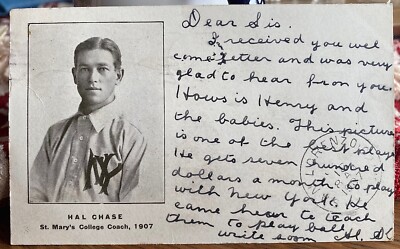 Dear Sis.
I received you wel
come letter and was very
glad to hear from you.
Hows is Henry and
the babies. This picture
is one of the best player
He gets seven hundred
dollars a month to play
with New York. He
came hear to teach
them to play ball
write soon
NY
HAL CHASE
St. Mary's College Coach, 1907